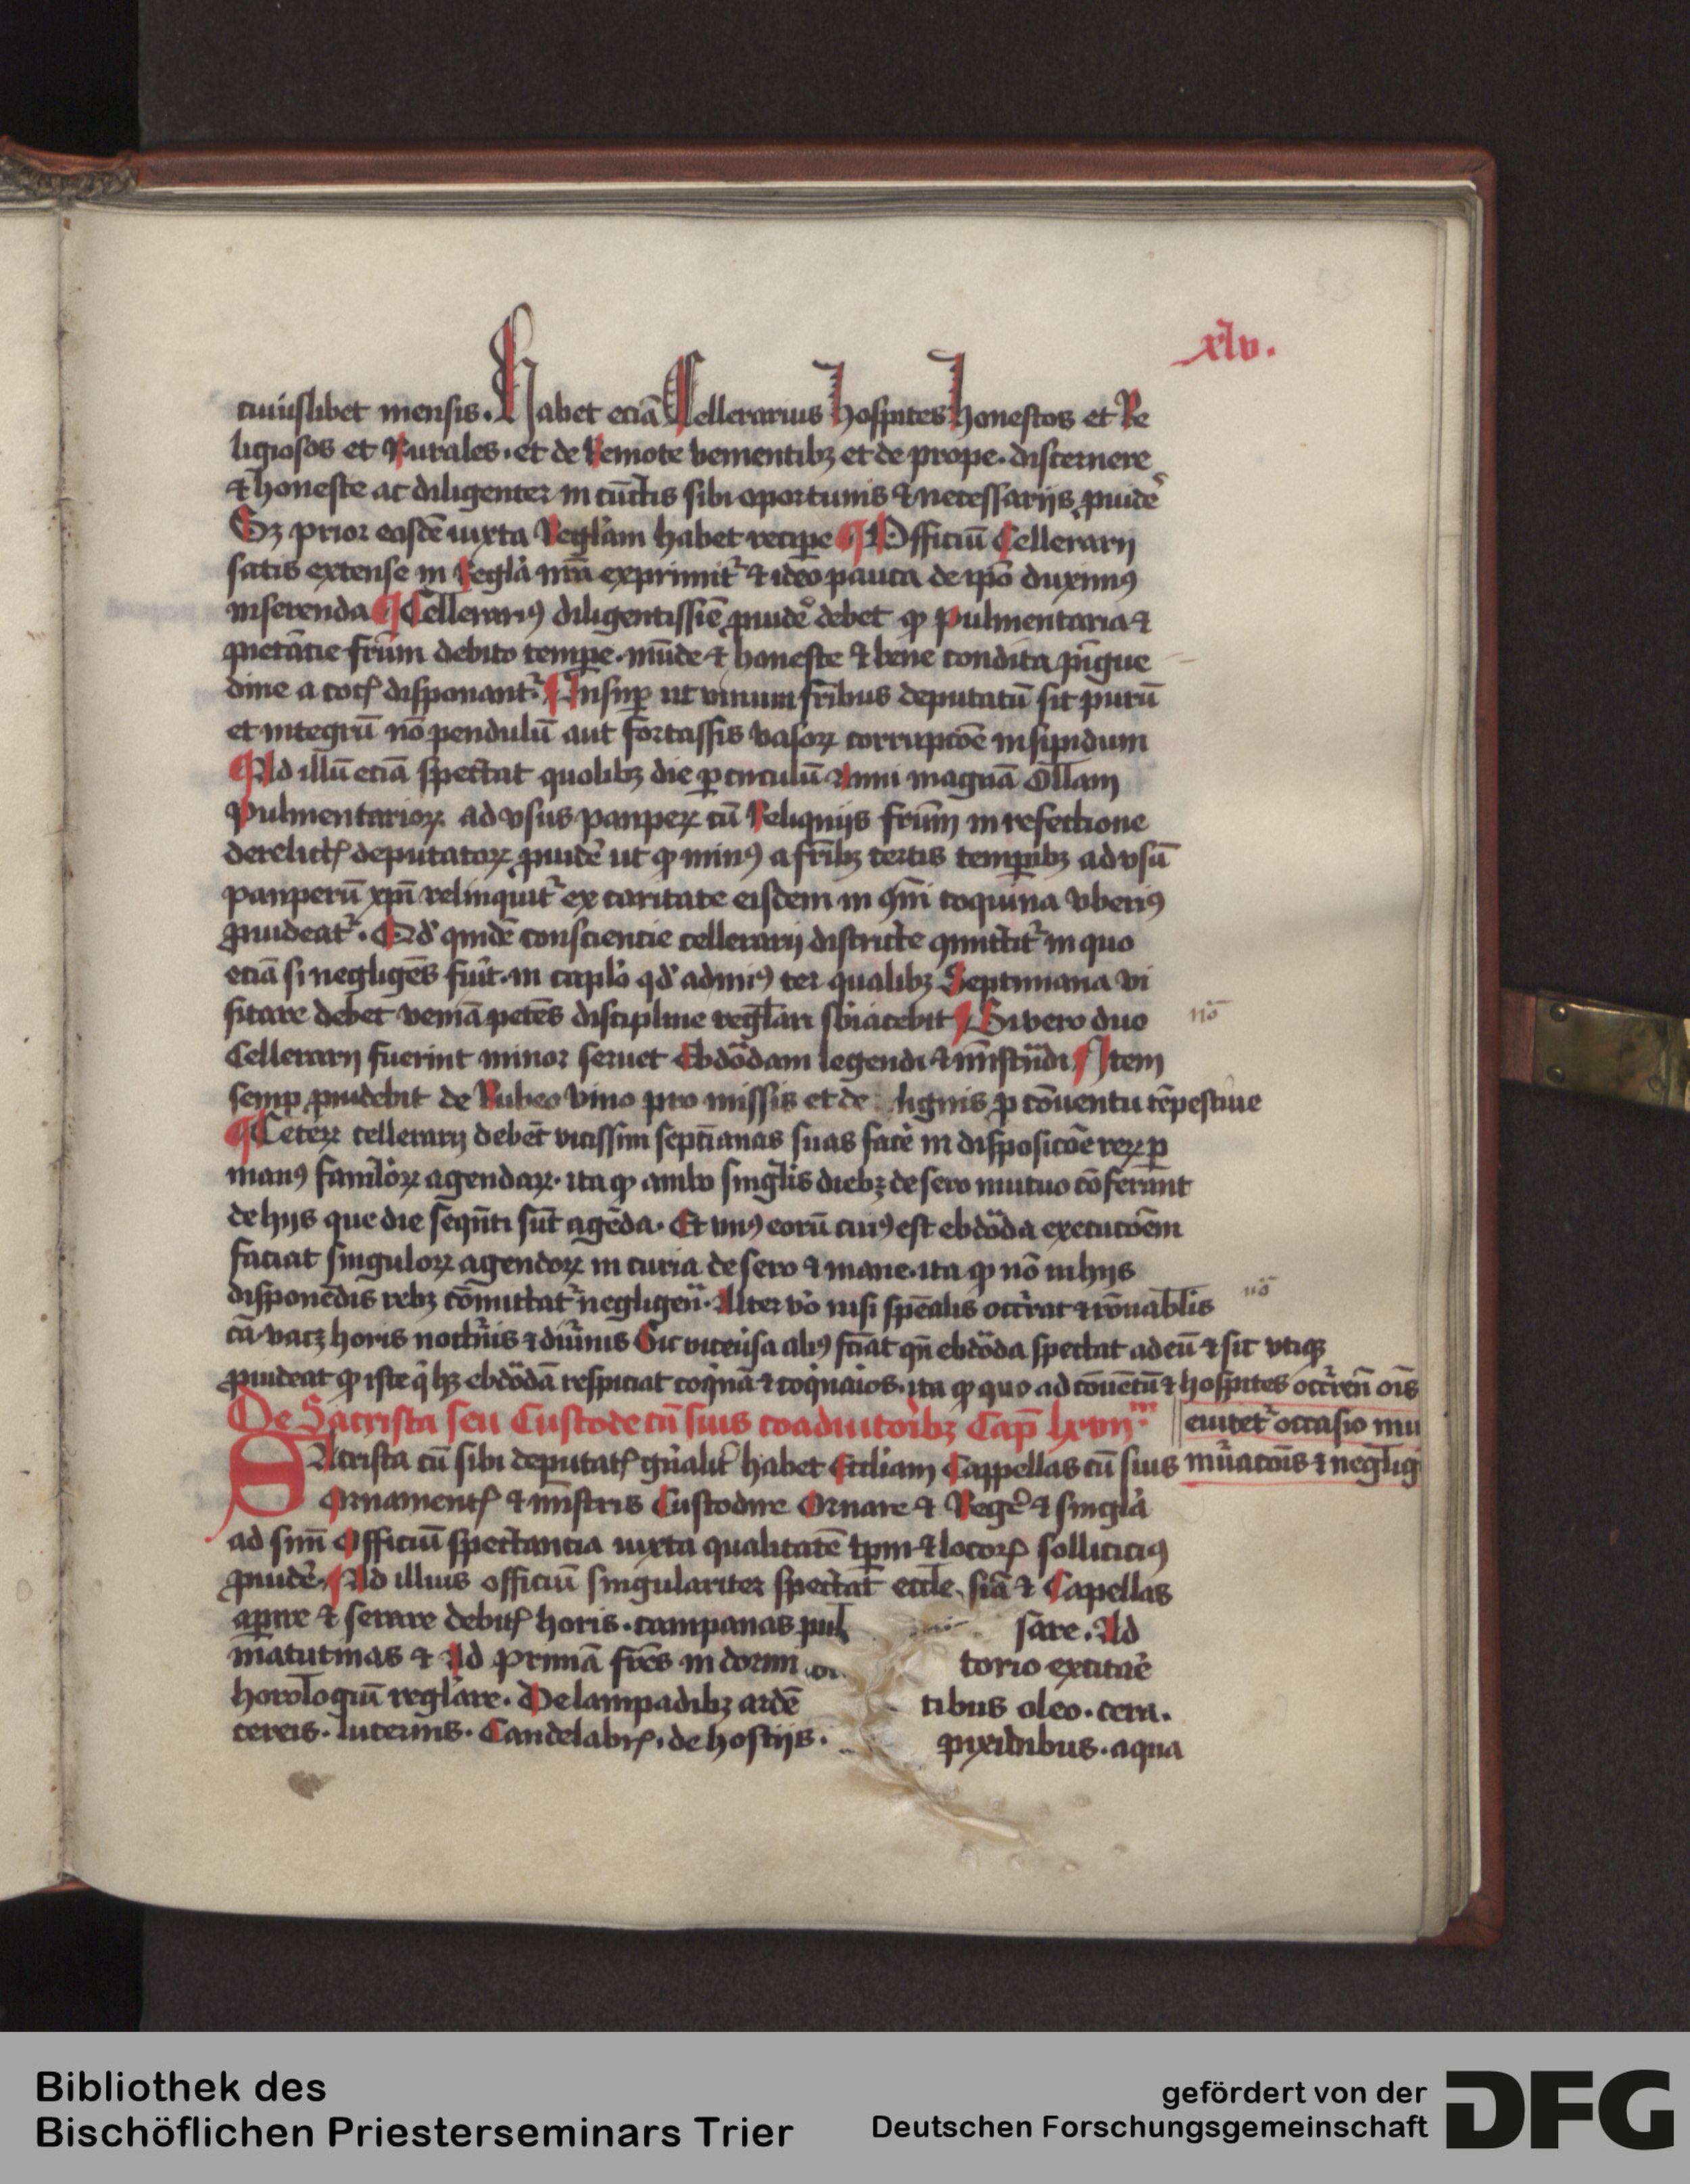 53
xlv.
cuiuslibet mensis. Habet eciā Cellerarius hospites honestos et Re
ligiosos et Rurales. et de Remote venientibꝫ et de prope. discernere
⁊ honeste ac diligenter in cūctis sibi oportunis ⁊ necessarijs ꝓuidē
Sꝫ prior eosdē iuxta Regl'am habet recipe ¶ Officiū Cellerarij
satis extense in Regl'a nr̄a exprimit᷑ ⁊ ideo pauca de ip̄o duximꝰ
inserenda ¶ Cellerariꝰ diligentissīe ꝓuidē debet ꝙ pulmentaria ⁊
pietācie fr̄um debito tempe. mūde ⁊ honeste ⁊ bene condita pīgue
dine a cocꝭ disponant᷑. ¶ Insuꝑ ut vinum fr̄ibus deputatū sit purū
et integrū nō pendulū aut fortassis vasoꝝ corrupcōe insipidum
¶ Ad illū eciā spectat quolibꝫ die ꝑ circulū Anni magnā Ollam
pulmentarioꝝ ad vsus pauꝑeꝝ cū Reliquijs fr̄um in refectione
derelictꝭ deputatoꝝ ꝓuidē ut ꝙ minꝰ a fr̄ibꝫ certis temꝑibꝫ ad vsū
pauperū xp̄i relinquit᷑ ex caritate eisdem in coquina vberiꝰ
ꝓuideat᷑. Qd' quidē consciencie cellerarij districte ꝯmittit᷑ in quo
eciā si negligēs fuīt. in capl'o qd' admīꝰ ter qualibꝫ Septimana vi
sitare debet veniā petēs discipline regl'ari sbiacebit ¶ Si vero duo
nō
Cellerarij fuerint minor seruet Ebdōdam legendi ⁊ mīstrādi ¶ Item
semꝑ ꝓuidebit de Rubeo vino pro missis et de lignis ꝑ cōuentu tēpestiue
¶ Ceteꝝ cellerarij debēt vicissim septīanas suas facē in disposicōe reꝝ ꝑ
manꝰ famil'oꝝ agendaꝝ. ita ꝙ ambo singl'is diebꝫ de sero mutuo cōferant
de hijs que die seqn̄ti sūt agēda. Et vnꝰ eorū cuiꝰ est ebdōda execucōem
faciat singuloꝝ agendoꝝ in curia de sero ⁊ mane. ita ꝙ nō in hijs
disponēdis rebꝫ cōmittat᷑ negligen̄. Alter v'o nisi spēalis occ'rat ⁊ rōnabl'is
nō
cā vacꝫ horis noct'nis ⁊ diu'nis Sic viceu'sa aliꝰ fīat qn̄ ebdōda spectat ad eū ⁊ sic vtiqꝫ
ꝓuideat ꝙ iste q' hꝫ ebdōdā respiciat coq'nā ⁊ coq'naios. ita ꝙ quo ad cōuētū ⁊ hospites occ'ren̄ oīs
De Sacrista seu Custode cū suis coadiutoribꝫ Cap̄ lxviijᵐ
euitet᷑ occasio mu
Sacrista cū sibi deputatꝭ gn̄alit᷑ habet Eccl'iam Cappellas cū suis
mu'acōis ⁊ neglig
Ornamentꝭ ⁊ mīstris Custodire Ornare ⁊ Regē ⁊ singl'a
ad sūū Officiū spectancia iuxta qualitatē tp̄m ⁊ locorꝭ solliciciꝰ
ꝓuidē. ¶ Ad illius officiū singulariter spectat eccle siā ⁊ Capellas
aperire ⁊ serare debitꝭ horis. campanas pul sare. Ad
matutinas ⁊ Ad primā frēs in dormi torio excitaē
horologiū regl'are. De lampadibꝫ ardē tibus oleo. cera.
cereis. lucernis. Candelabrꝭ. de hostijs. pixidibus. aqua
Bibliothek des
Bischöflichen Priesterseminars Trier
gefördert von der
Deutschen Forschungsgemeinschaft
DFG